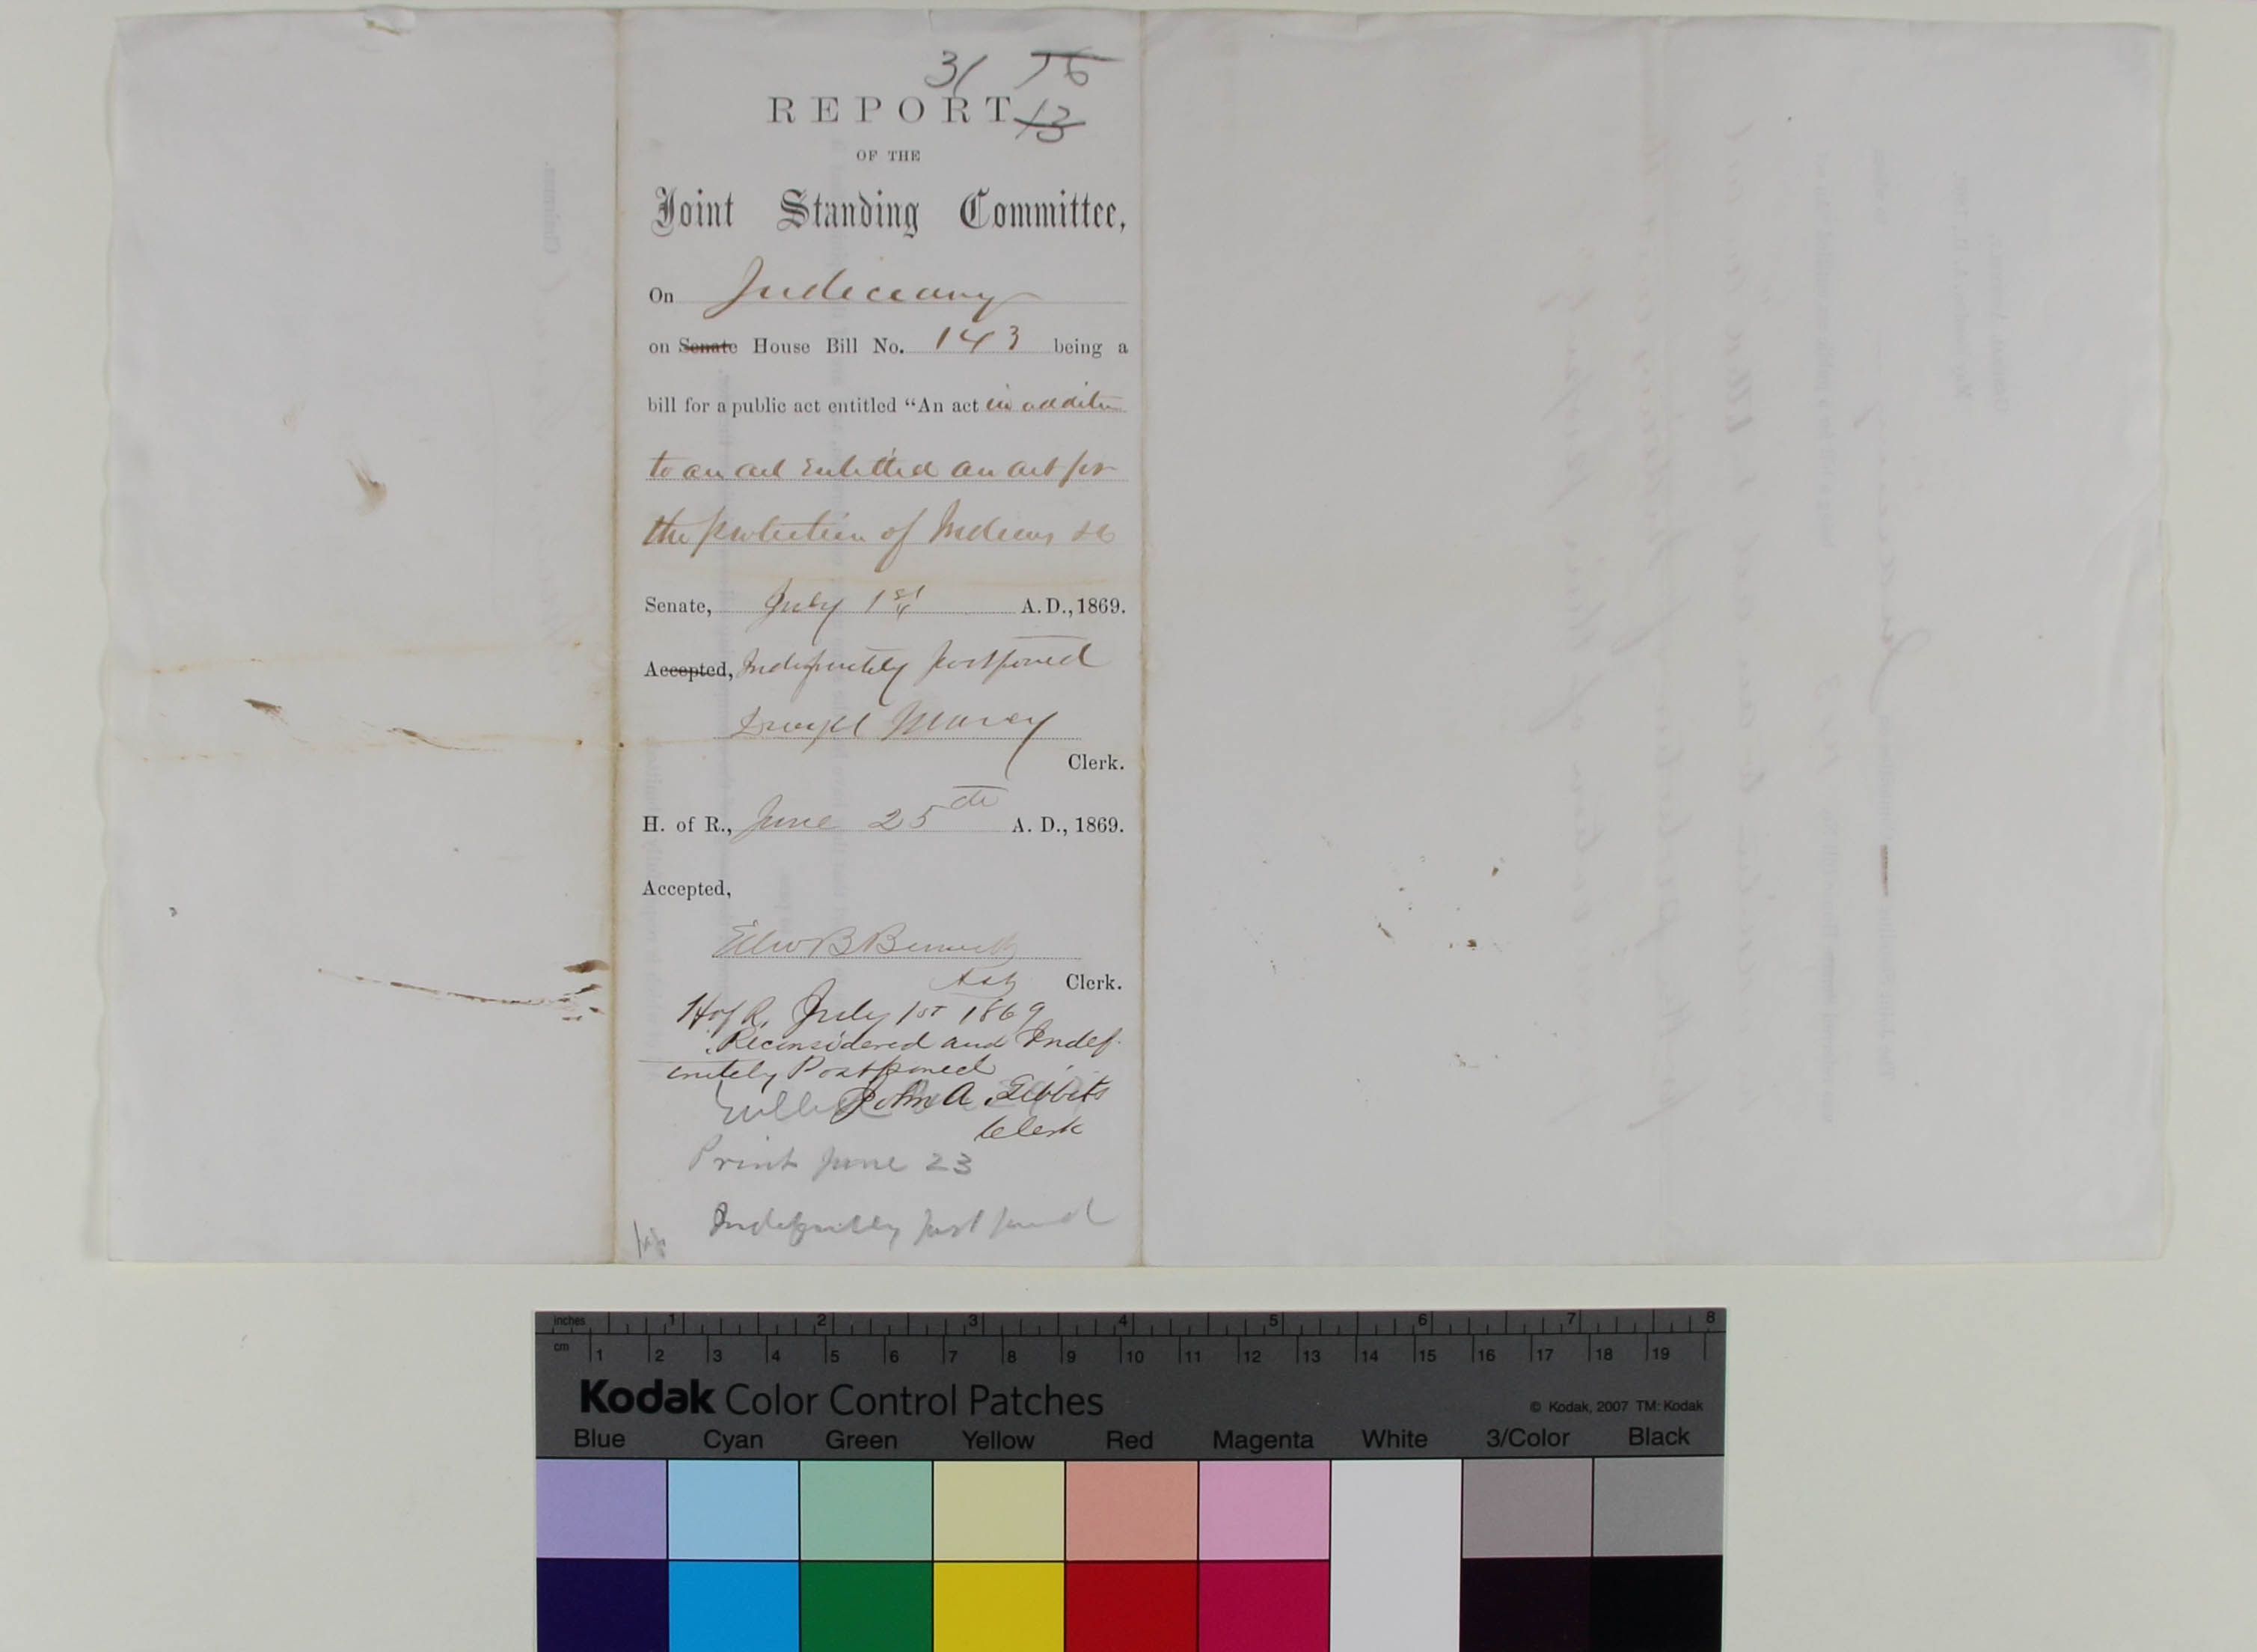 31 76
REPORT 13
OF THE
Joint Standing Committee,
On Judiciary
on Senate House Bill No. 143 being a
bill for a public act entitled "An act in addition
to an act Entitled an act for
the protection of Indians &c
Senate, July 1st A. D., 1869.
Accepted, Indefinitely postponed
Dwight Marcy
Clerk.
H. of R., June 25th A. D., 1869.
Accepted,
Edw B Bennett
Asst Clerk.
H of R, July 1st 1869
Reconsidered and Indef-
initely Postponed
John A. Tibbits
Clerk
Print June 23
Indefinitely postponed
inches 1 2 3 4 5 6 7 8
cm 1 2 3 4 5 6 7 8 9 10 11 12 13 14 15 16 17 18 19
Kodak Color Control Patches
© Kodak, 2007 TM: Kodak
Blue Cyan Green Yellow Red Magenta White 3/Color Black